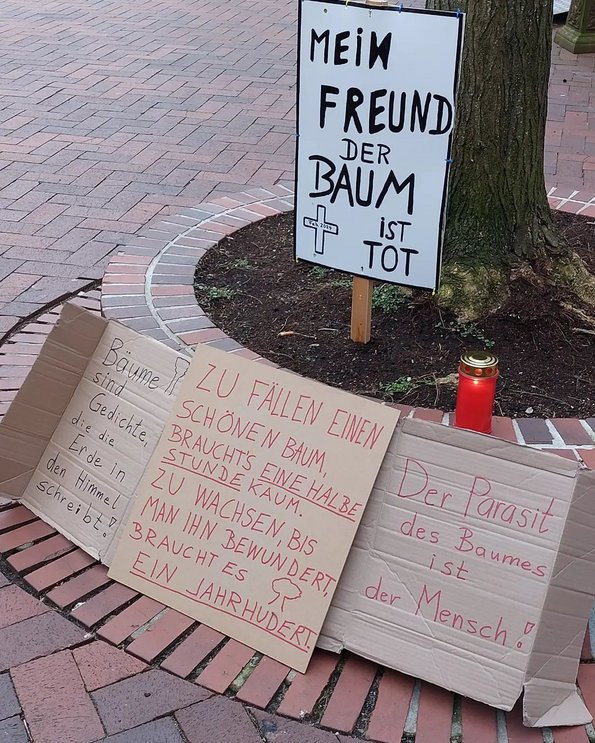 MEIN
FREUND
DER
BAUM
IST
TOT
Feb. 2024
Bäume
sind
Gedichte,
die die
Erde in
den Himmel
schreibt!
ZU FÄLLEN EINEN
SCHÖNEN BAUM,
BRAUCHT'S EINE HALBE
STUNDE KAUM.
ZU WACHSEN, BIS
MAN IHN BEWUNDERT,
BRAUCHT ES
EIN JAHRHUDERT.
Der Parasit
des Baumes
ist
der Mensch!